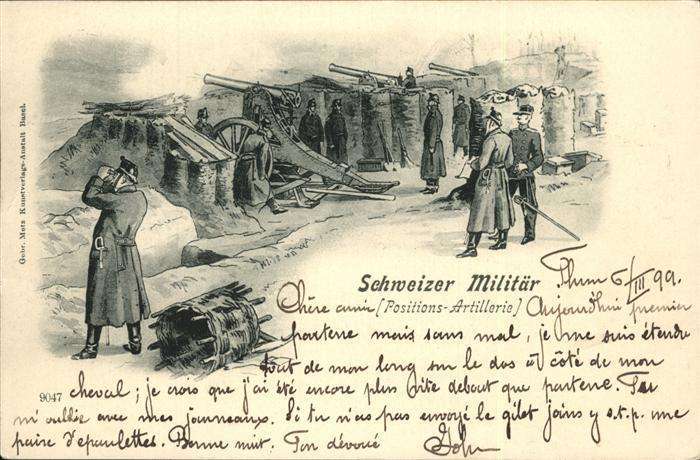 Gebr. Metz Kunstverlags-Anstalt Basel.
Schweizer Militär
Thun 6/III 99.
(Positions-Artillerie)
Chère amie Aujourd'hui premier
parterre mais sans mal, je me suis étendu
tout de mon long sur le dos à côté de mon
9047
cheval; je crois que j'ai été encore plus vite debout que parterre. J'ai
m' avec mes journaux. Si tu n'as pas envoyé le gilet joins y s.t.p. une
paire d'epaulettes. Bonne nuit. Ton dévoué
John